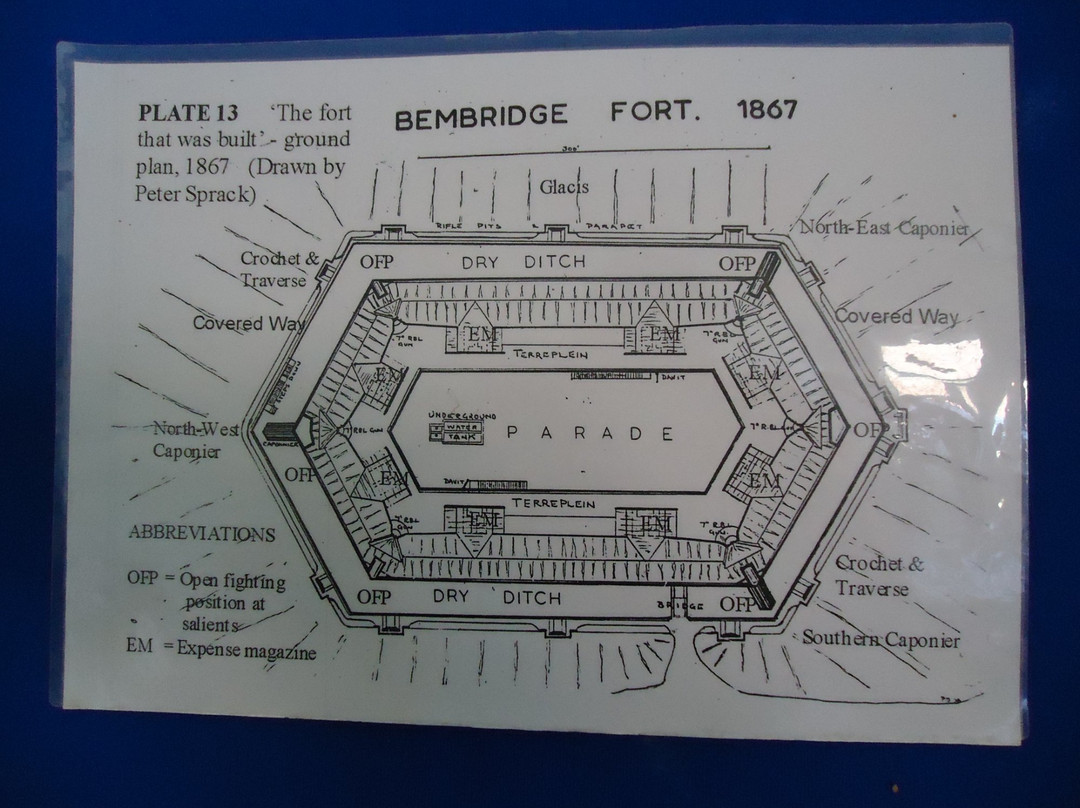 PLATE 13 'The fort
that was built' - ground
plan, 1867 (Drawn by
Peter Sprack)
BEMBRIDGE FORT. 1867
300'
Glacis
RIFLE PITS & PARAPET
North-East Caponier
Crochet &
Traverse
OFP
DRY DITCH
OFP
Covered Way
Covered Way
EM
EM
7" RBL
GUN
7" RBL
GUN
TERREPLEIN
EM
EM
DAVIT
STEPS DOWN
UNDERGROUND
WATER
TANK
PARADE
North-West
Caponier
CAPONIER
7" RBL GUN
7" RBL GUN
OFP
OFP
EM
EM
DAVIT
TERREPLEIN
EM
EM
7" RBL
GUN
7" RBL
GUN
ABBREVIATIONS
OFP = Open fighting
position at
salients
EM = Expense magazine
Crochet &
Traverse
OFP
DRY DITCH
BRIDGE
OFP
Southern Caponier